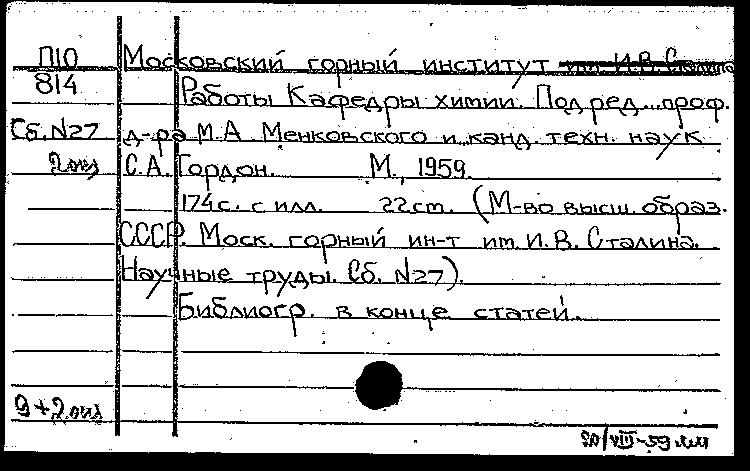 П10 Московский горный институт им. И.В. Сталина
814 Работы Кафедры химии. Под ред. проф.
Сб. N27 д-ра М.А. Менковского и канд. техн. наук
С.А. Гордон. М., 1959.
174с. с илл. 22см. (М-во высш. образ.
СССР. Моск. горный ин-т им. И.В. Сталина.
Научные труды. Сб. N27).
Библиогр. в конце статей.
20/VIII-59